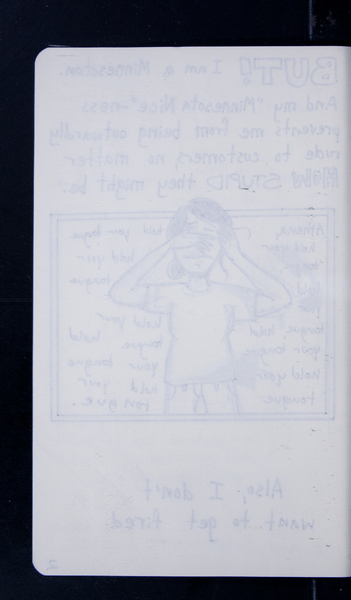 BUT! I am a Minnesotan.
And my "Minnesota Nice"-ness
prevents me from being outwardly
rude to customers, no matter
HOW STUPID they might be.
Athena, hold your tongue
hold your
tongue
hold your tongue
hold your
tongue, hold
your tongue
hold your
tongue
hold your
tongue hold
your tongue
hold your
tongue.
Also, I don't
want to get fired
2